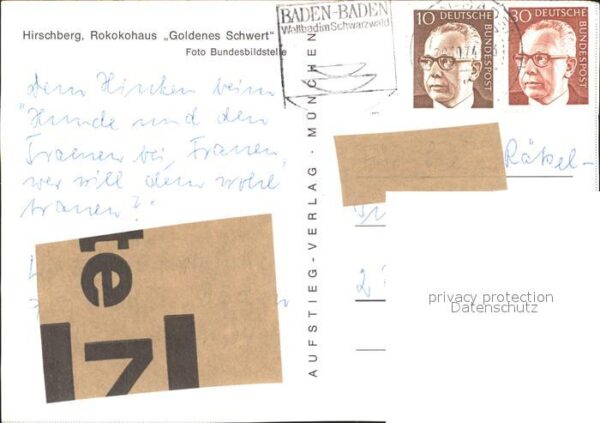 Hirschberg, Rokokohaus „Goldenes Schwert"
Foto Bundesbildstelle
BADEN-BADEN
Weltbad im Schwarzwald
10 DEUTSCHE BUNDESPOST
30 DEUTSCHE BUNDESPOST
„Dem Hinken beim
Hunde und den
Tränen bei Frauen,
wer will dem wohl
trauen?"
te
AUFSTIEG-VERLAG · MÜNCHEN
Räkel-
2
privacy protection
Datenschutz